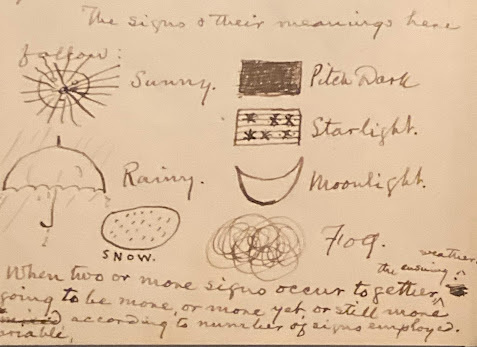 The signs & their meanings here
follow:
Sunny.
Pitch Dark
Starlight.
Rainy.
Moonlight.
SNOW.
Fog.
When two or more signs occur together, the ensuing weather
going to be more, or more yet, or still more
according to number of signs employed.
variable,